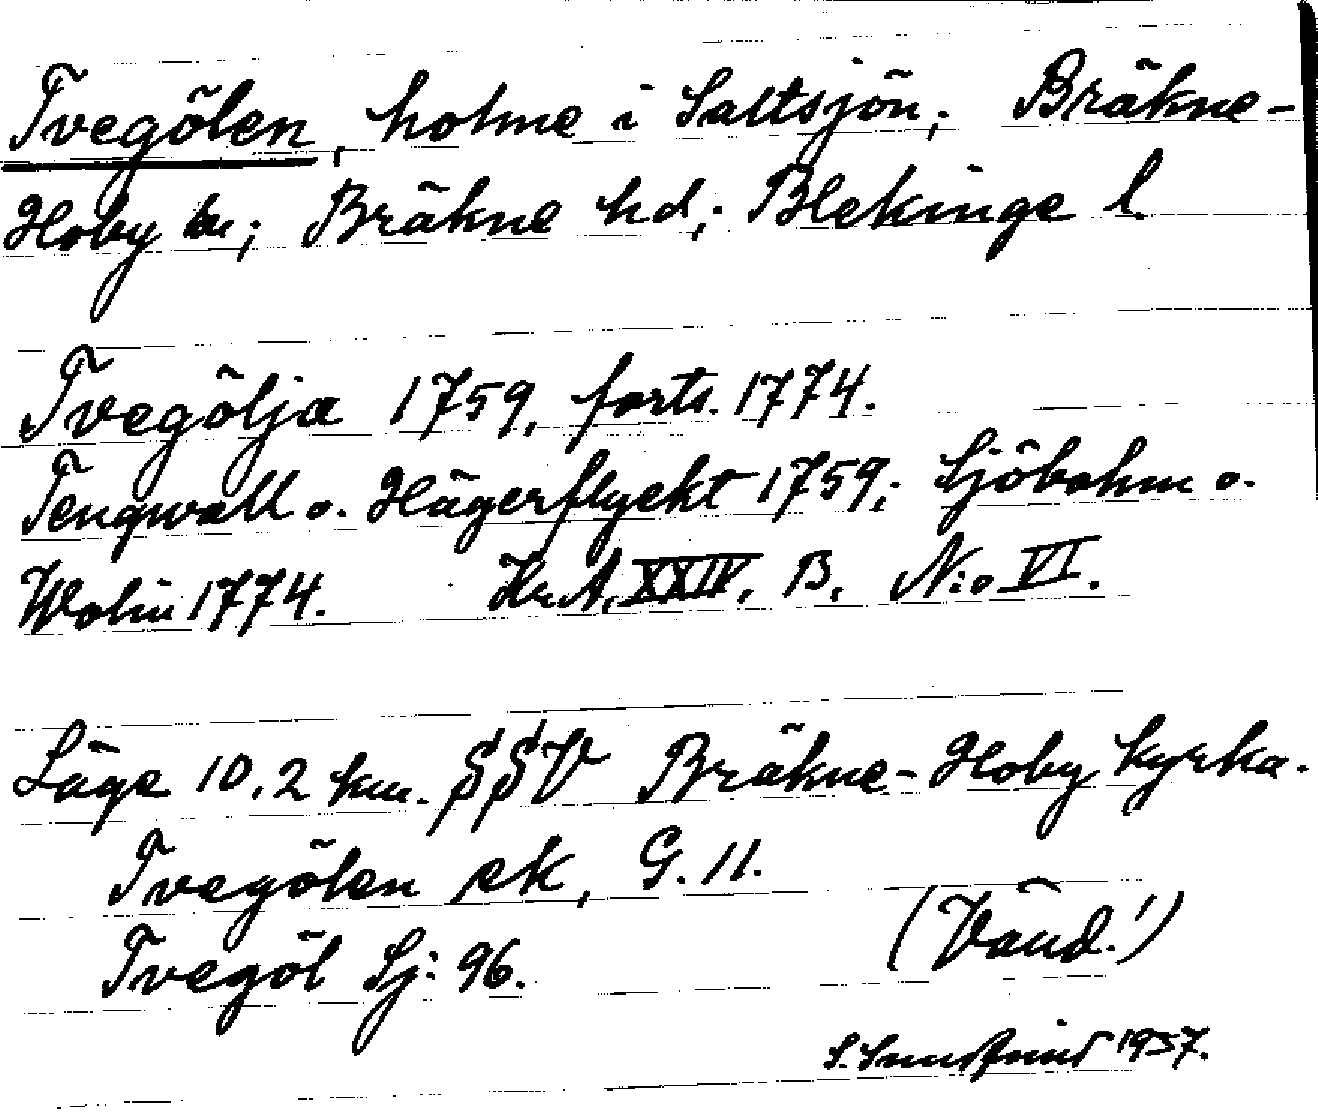 Tvegölen, holme i Saltsjön; Bräkne-
Hoby sn; Bräkne hd; Blekinge l.
Tvegölja 1759, forts. 1774.
Tengwall o. Hägerflycht 1759; Sjöbohm o.
Wolin 1774. Kr.A. XXIV, B, N:o VI.
Läge 10,2 km. SSV Bräkne-Hoby kyrka.
Tvegölen ek, G. 11.
Tvegöl Sj: 96.
(Vänd!)
S. 1937.